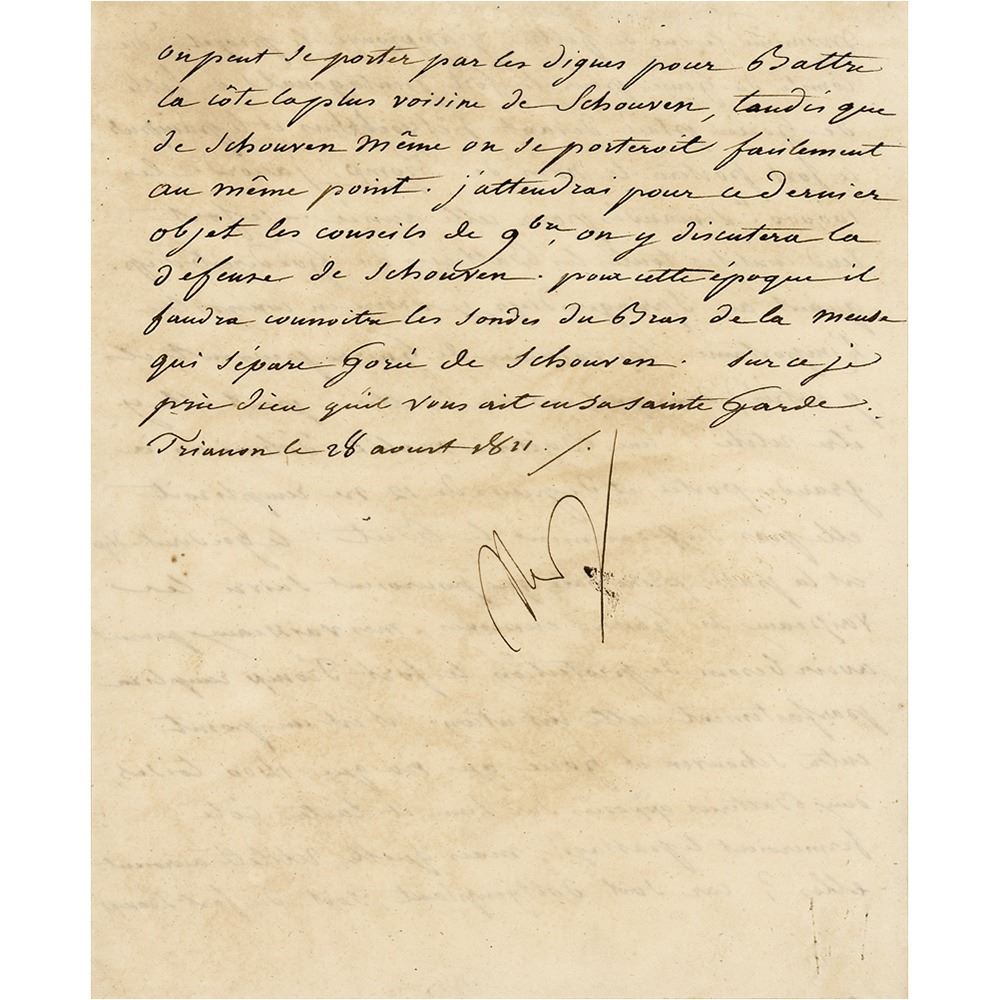 on peut se porter par les digues pour Battre
la côte la plus voisine de Schouven, tandis que
de Schouven même on se porteroit facilement
au même point. j'attendrai pour ce dernier
objet les conseils de 9bre, on y discutera la
défense de Schouven. pour cette époque il
faudra connoitre les sondes du Bras de la meuse
qui sépare Gorée de Schouven. sur ce je
prie dieu qu'il vous ait en sa sainte Garde.
Trianon le 28 aoust 1811./.